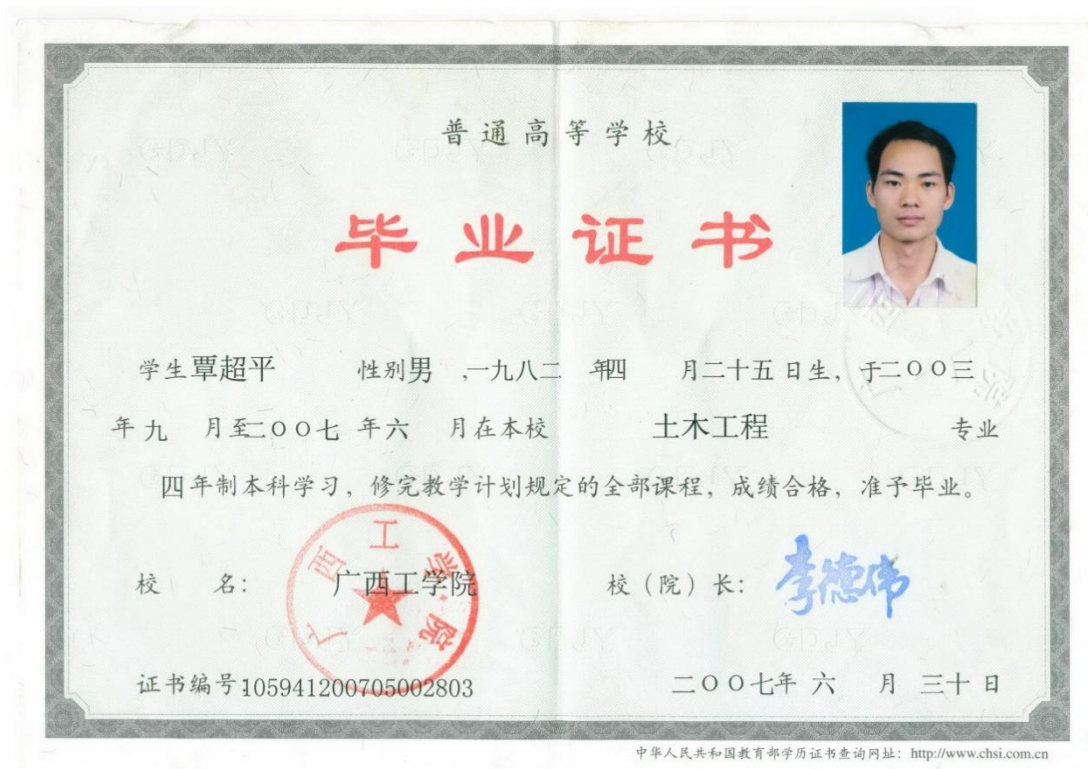 普通高等学校
毕业证书
学生覃超平 性别男 ,一九八二 年四 月二十五日生，于二００三
年九 月至二００七 年六 月在本校 土木工程 专业
四年制本科学习，修完教学计划规定的全部课程，成绩合格，准予毕业。
广西工学院
校 名： 广西工学院 校（院）长： 李德伟
证书编号:105941200705002803 二００七年 六 月 三十日
中华人民共和国教育部学历证书查询网址：http://www.chsi.com.cn